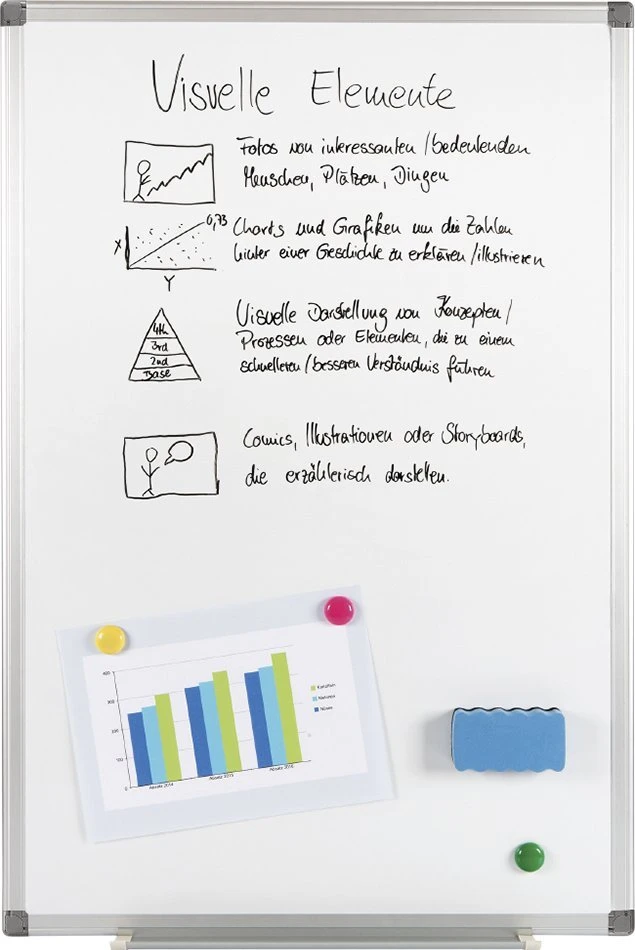 Visuelle Elemente
Fotos von interessanten/bedeutenden
Menschen, Plätzen, Dingen
0,73
X
Y
Charts und Grafiken um die Zahlen
hinter einer Geschichte zu erklären/illustrieren
4th
3rd
2nd
Base
Visuelle Darstellung von Konzepten/
Prozessen oder Elementen, die zu einem
schnelleren/besseren Verständnis führen
Comics, Illustrationen oder Storyboards,
die erzählerisch darstellen.
400
300
200
100
0
Absatz 2014
Absatz 2015
Absatz 2016